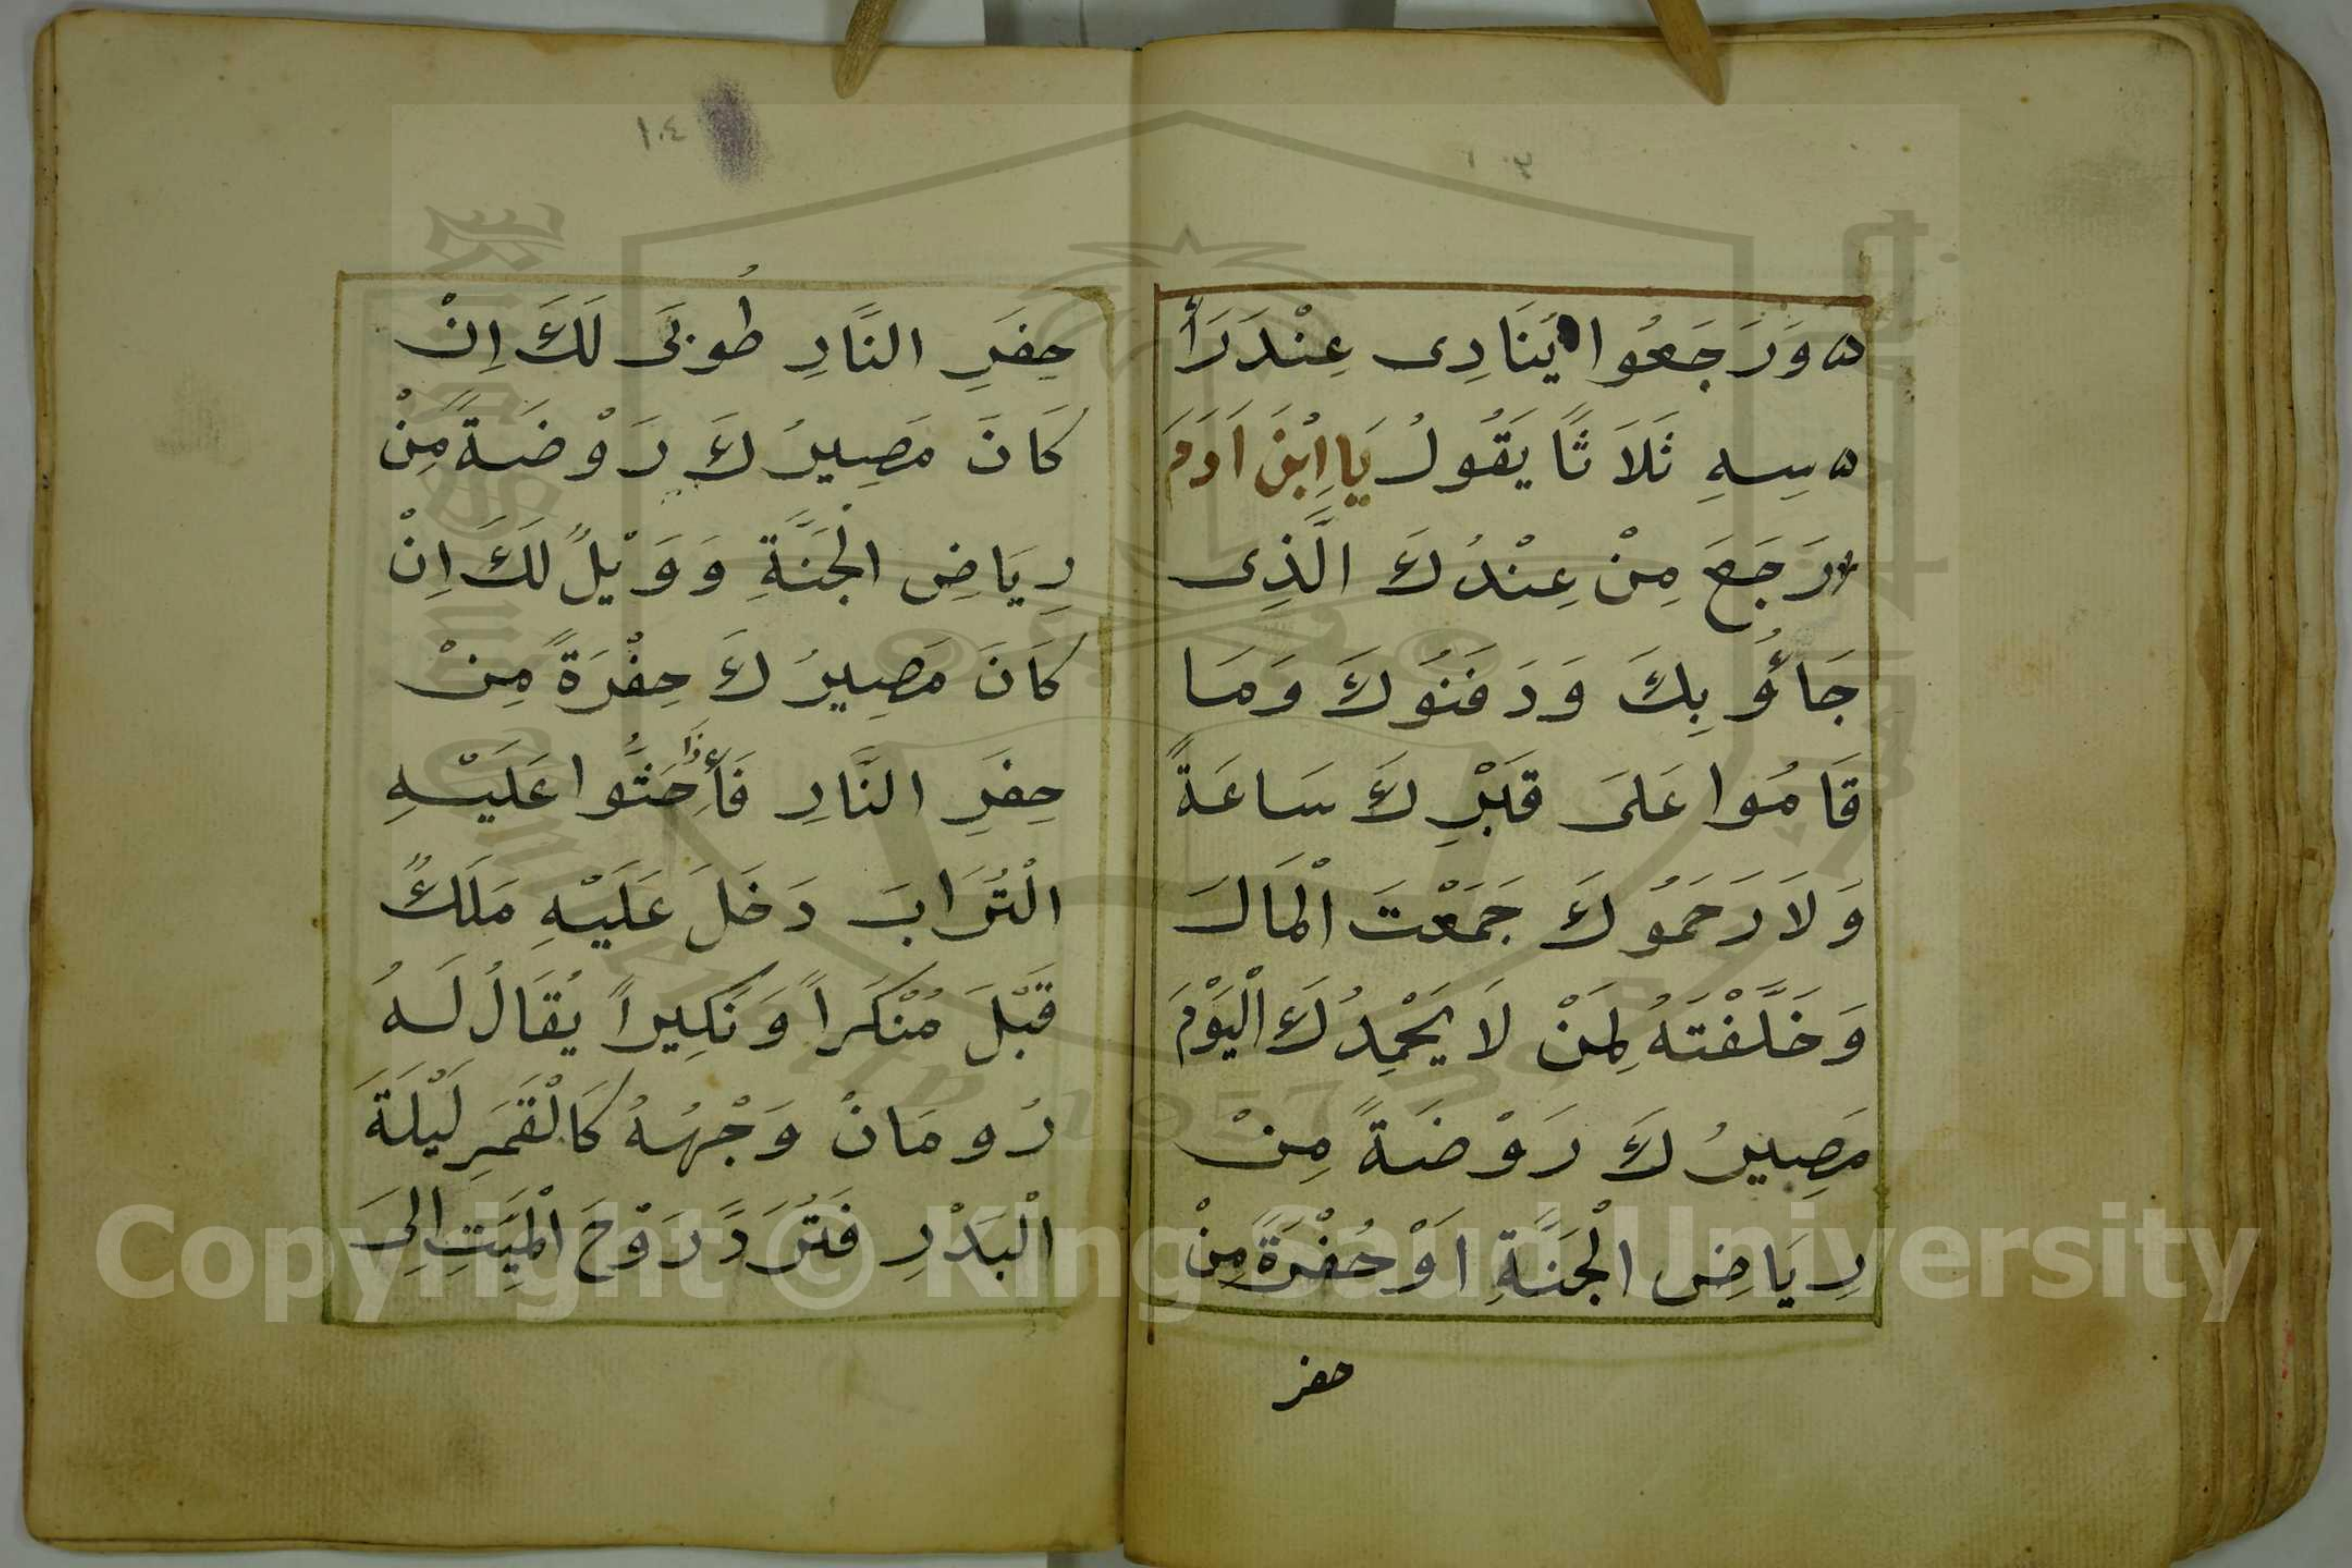 ١٠٣
ه وَرَجَعُوا يُنَادِى عِنْدَ رَأْ
ه سِهِ ثَلَاثًا يَقُولُ يَا اِبْنَ اَدَمَ
رَجَعَ مِنْ عِنْدُكَ الَّذِى
جَاؤُ بِكَ وَدَفَنُوكَ وَمَا
قَامُوا عَلَى قَبْرِكَ سَاعَةً
وَلَا رَحَمُوكَ جَمَعْتَ الْمَالَ
وَخَلَّفْتَهُ لِمَنْ لَا يَحْمِدُكَ الْيَوْمَ
مَصِيرُكَ رَوْضَةً مِنْ
رِيَاضِ الْجَنَّةِ اَوْ حُفْرَةً مِنْ
حفر
١٠٤
حِفَرِ النَّارِ طُوبَى لَكَ اِنْ
كَانَ مَصِيرُكَ رَوْضَةً مِنْ
رِيَاضِ الْجَنَّةِ وَوَيْلٌ لَكَ اِنْ
كَانَ مَصِيرُكَ حِفْرَةً مِنْ
حِفَرِ النَّارِ فَأِذَا حَثُّوا عَلَيْهِ
الْتُرَابَ دَخَلَ عَلَيْهِ مَلَكٌ
قَبْلَ مُنْكَراً وَنَكِيراً يُقَالُ لَهُ
رُومَانْ وَجْهُهُ كَالْقَمَرِ لَيْلَةَ
الْبَدْرِ فَتُرَدَّ رَوْحَ الْمَيِّتِ اِلَى
Copyright © King Saud University
1957